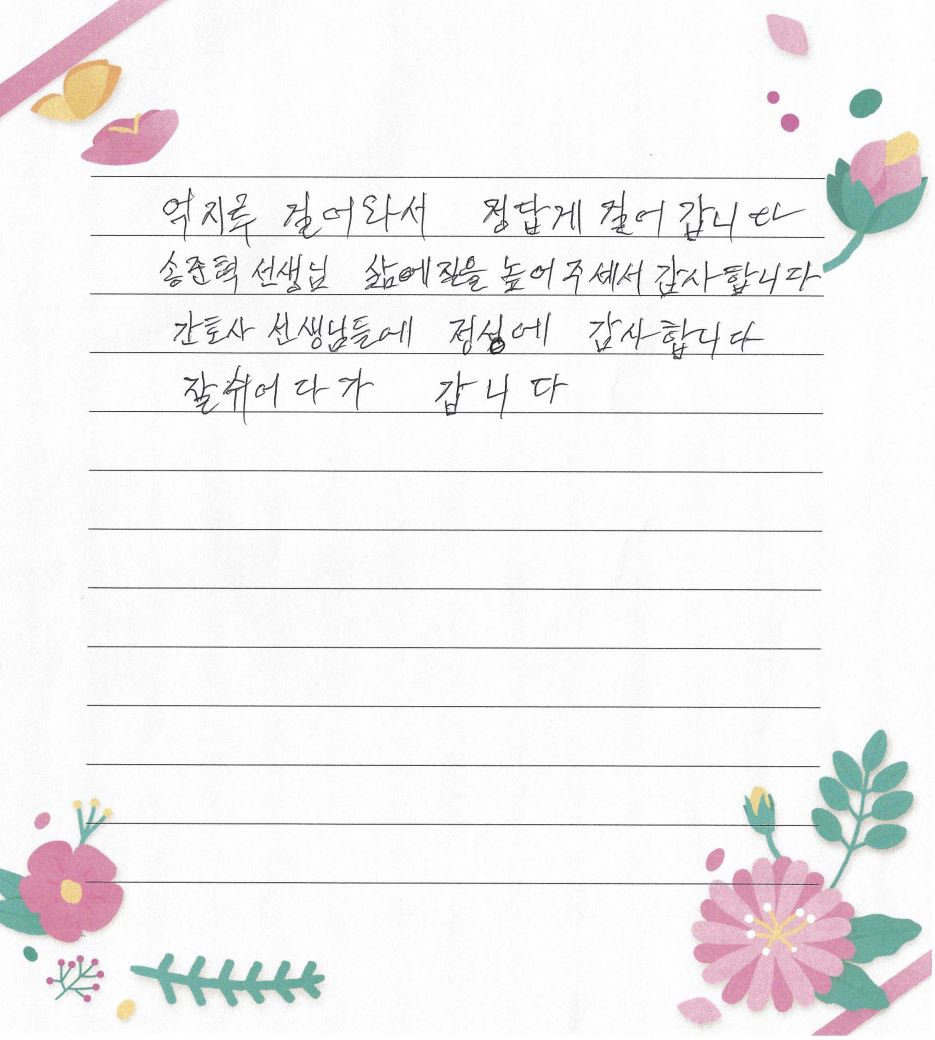 억지루 걸어와서 정답게 걸어 갑니다
송준혁 선생님 삶에질을 높여주세서 감사합니다
간호사 선생님들에 정성에 감사합니다
잘쉬어 다가 갑니다